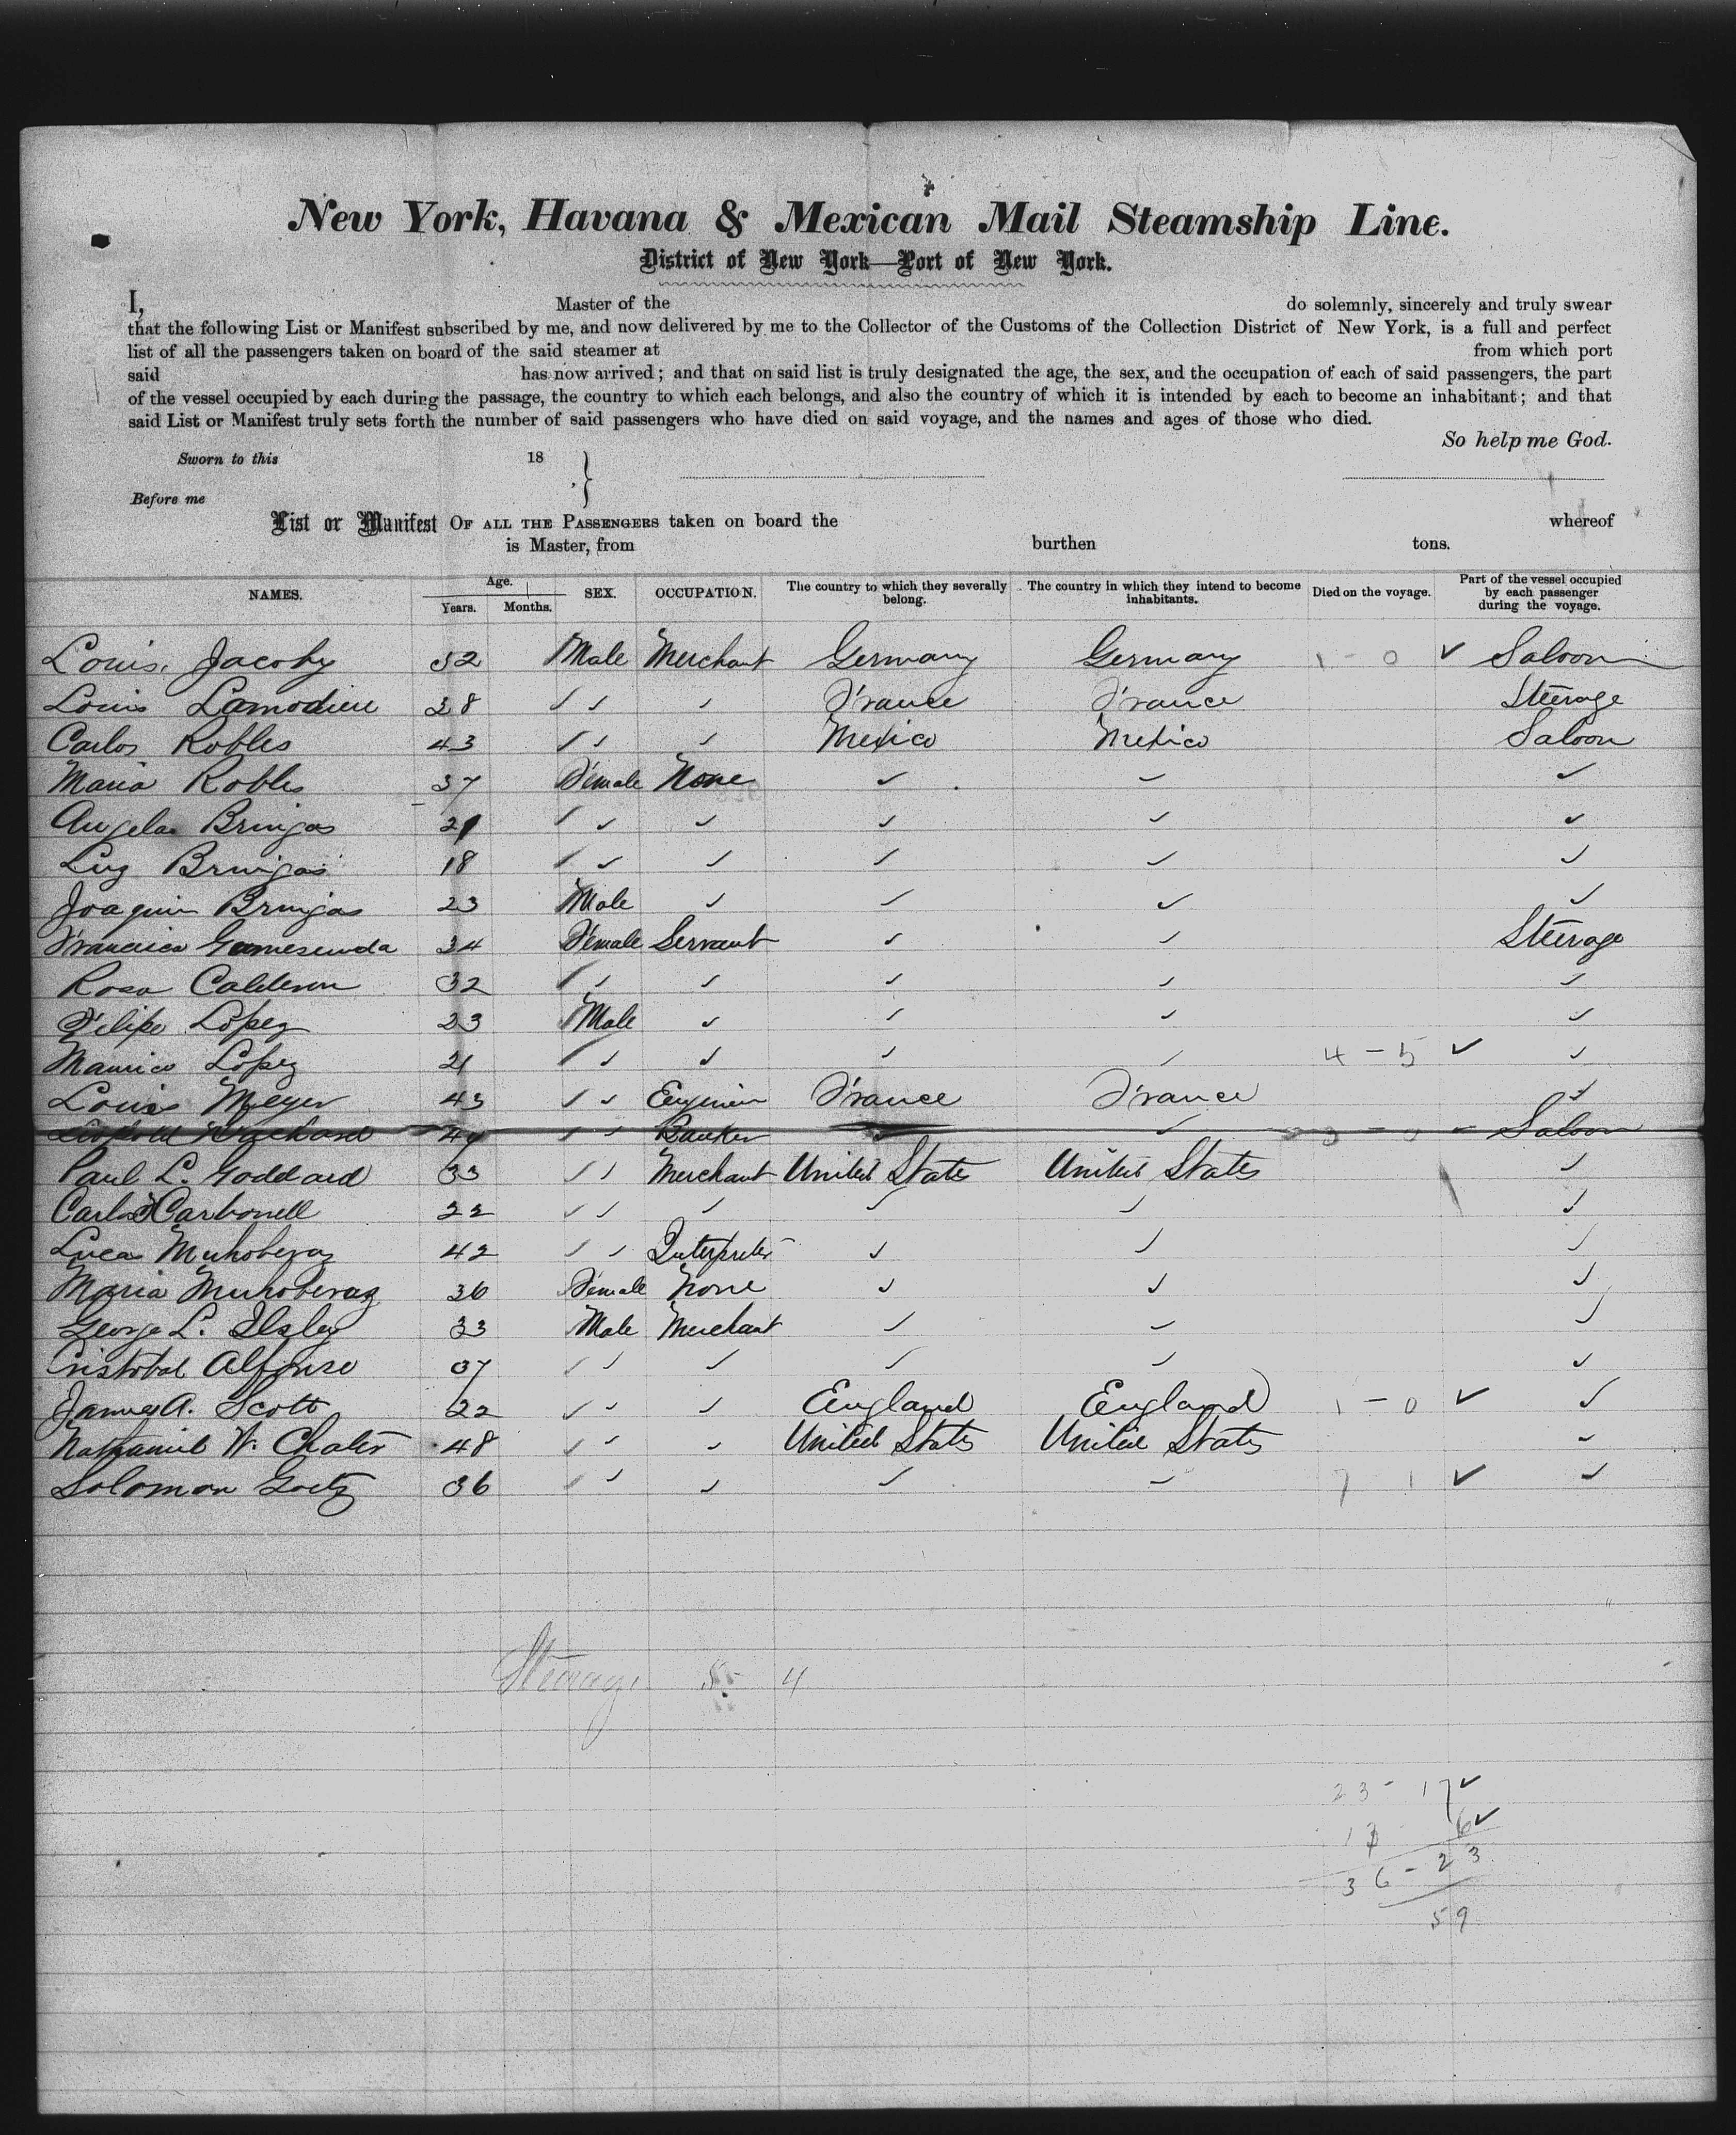 New York, Havana & Mexican Mail Steamship Line.
District of New York—Port of New York.
I, Master of the do solemnly, sincerely and truly swear
that the following List or Manifest subscribed by me, and now delivered by me to the Collector of the Customs of the Collection District of New York, is a full and perfect
list of all the passengers taken on board of the said steamer at from which port
said has now arrived; and that on said list is truly designated the age, the sex, and the occupation of each of said passengers, the part
of the vessel occupied by each during the passage, the country to which each belongs, and also the country of which it is intended by each to become an inhabitant; and that
said List or Manifest truly sets forth the number of said passengers who have died on said voyage, and the names and ages of those who died.
So help me God.
Sworn to this 18 }
Before me
List or Manifest OF ALL THE PASSENGERS taken on board the whereof
is Master, from burthen tons.
NAMES. Age. Years. Months. SEX. OCCUPATION. The country to which they severally belong. The country in which they intend to become inhabitants. Died on the voyage. Part of the vessel occupied by each passenger during the voyage.
Louis Jacoby 52 Male Merchant Germany Germany 1 - 0 ✓ Saloon
Louis Lamodieu 38 ✓ ✓ ✓ France France Steerage
Carlos Robles 43 ✓ ✓ ✓ Mexico Mexico Saloon
Maria Robles 37 Female None ✓ ✓ ✓
Angela Bringas 21 ✓ ✓ ✓ ✓ ✓ ✓
Luz Bringas 18 ✓ ✓ ✓ ✓ ✓ ✓
Joaquin Bringas 23 Male ✓ ✓ ✓ ✓
Francisca Gumesinda 34 Female Servant ✓ ✓ Steerage
Rosa Calderon 32 ✓ ✓ ✓ ✓ ✓ ✓
Felipe Lopez 23 Male ✓ ✓ ✓ ✓
Maurico Lopez 21 ✓ ✓ ✓ ✓ ✓ 4 - 5 ✓ ✓
Louis Meyer 43 ✓ ✓ Engineer France France ✓
Banker ✓ ✓ Saloon
Paul L. Goddard 33 ✓ ✓ Merchant United States United States ✓
Carlos Carbonell 22 ✓ ✓ ✓ ✓ ✓ ✓
Lucas Muhoberaz 42 ✓ ✓ Interpreter ✓ ✓ ✓
Maria Muhoberaz 36 Female None ✓ ✓ ✓
George L. Ilsley 33 Male Merchant ✓ ✓ ✓
Cristobal Alfonso 37 ✓ ✓ ✓ ✓ ✓ ✓
James A. Scott 22 ✓ ✓ ✓ England England 1 - 0 ✓ ✓
Nathaniel W. Chater 48 ✓ ✓ ✓ United States United States ✓
Solomon Goetz 36 ✓ ✓ ✓ ✓ ✓ 7 1 ✓ ✓
Steerage 5 4
23 - 17 ✓
13 6 ✓
36 - 23
59